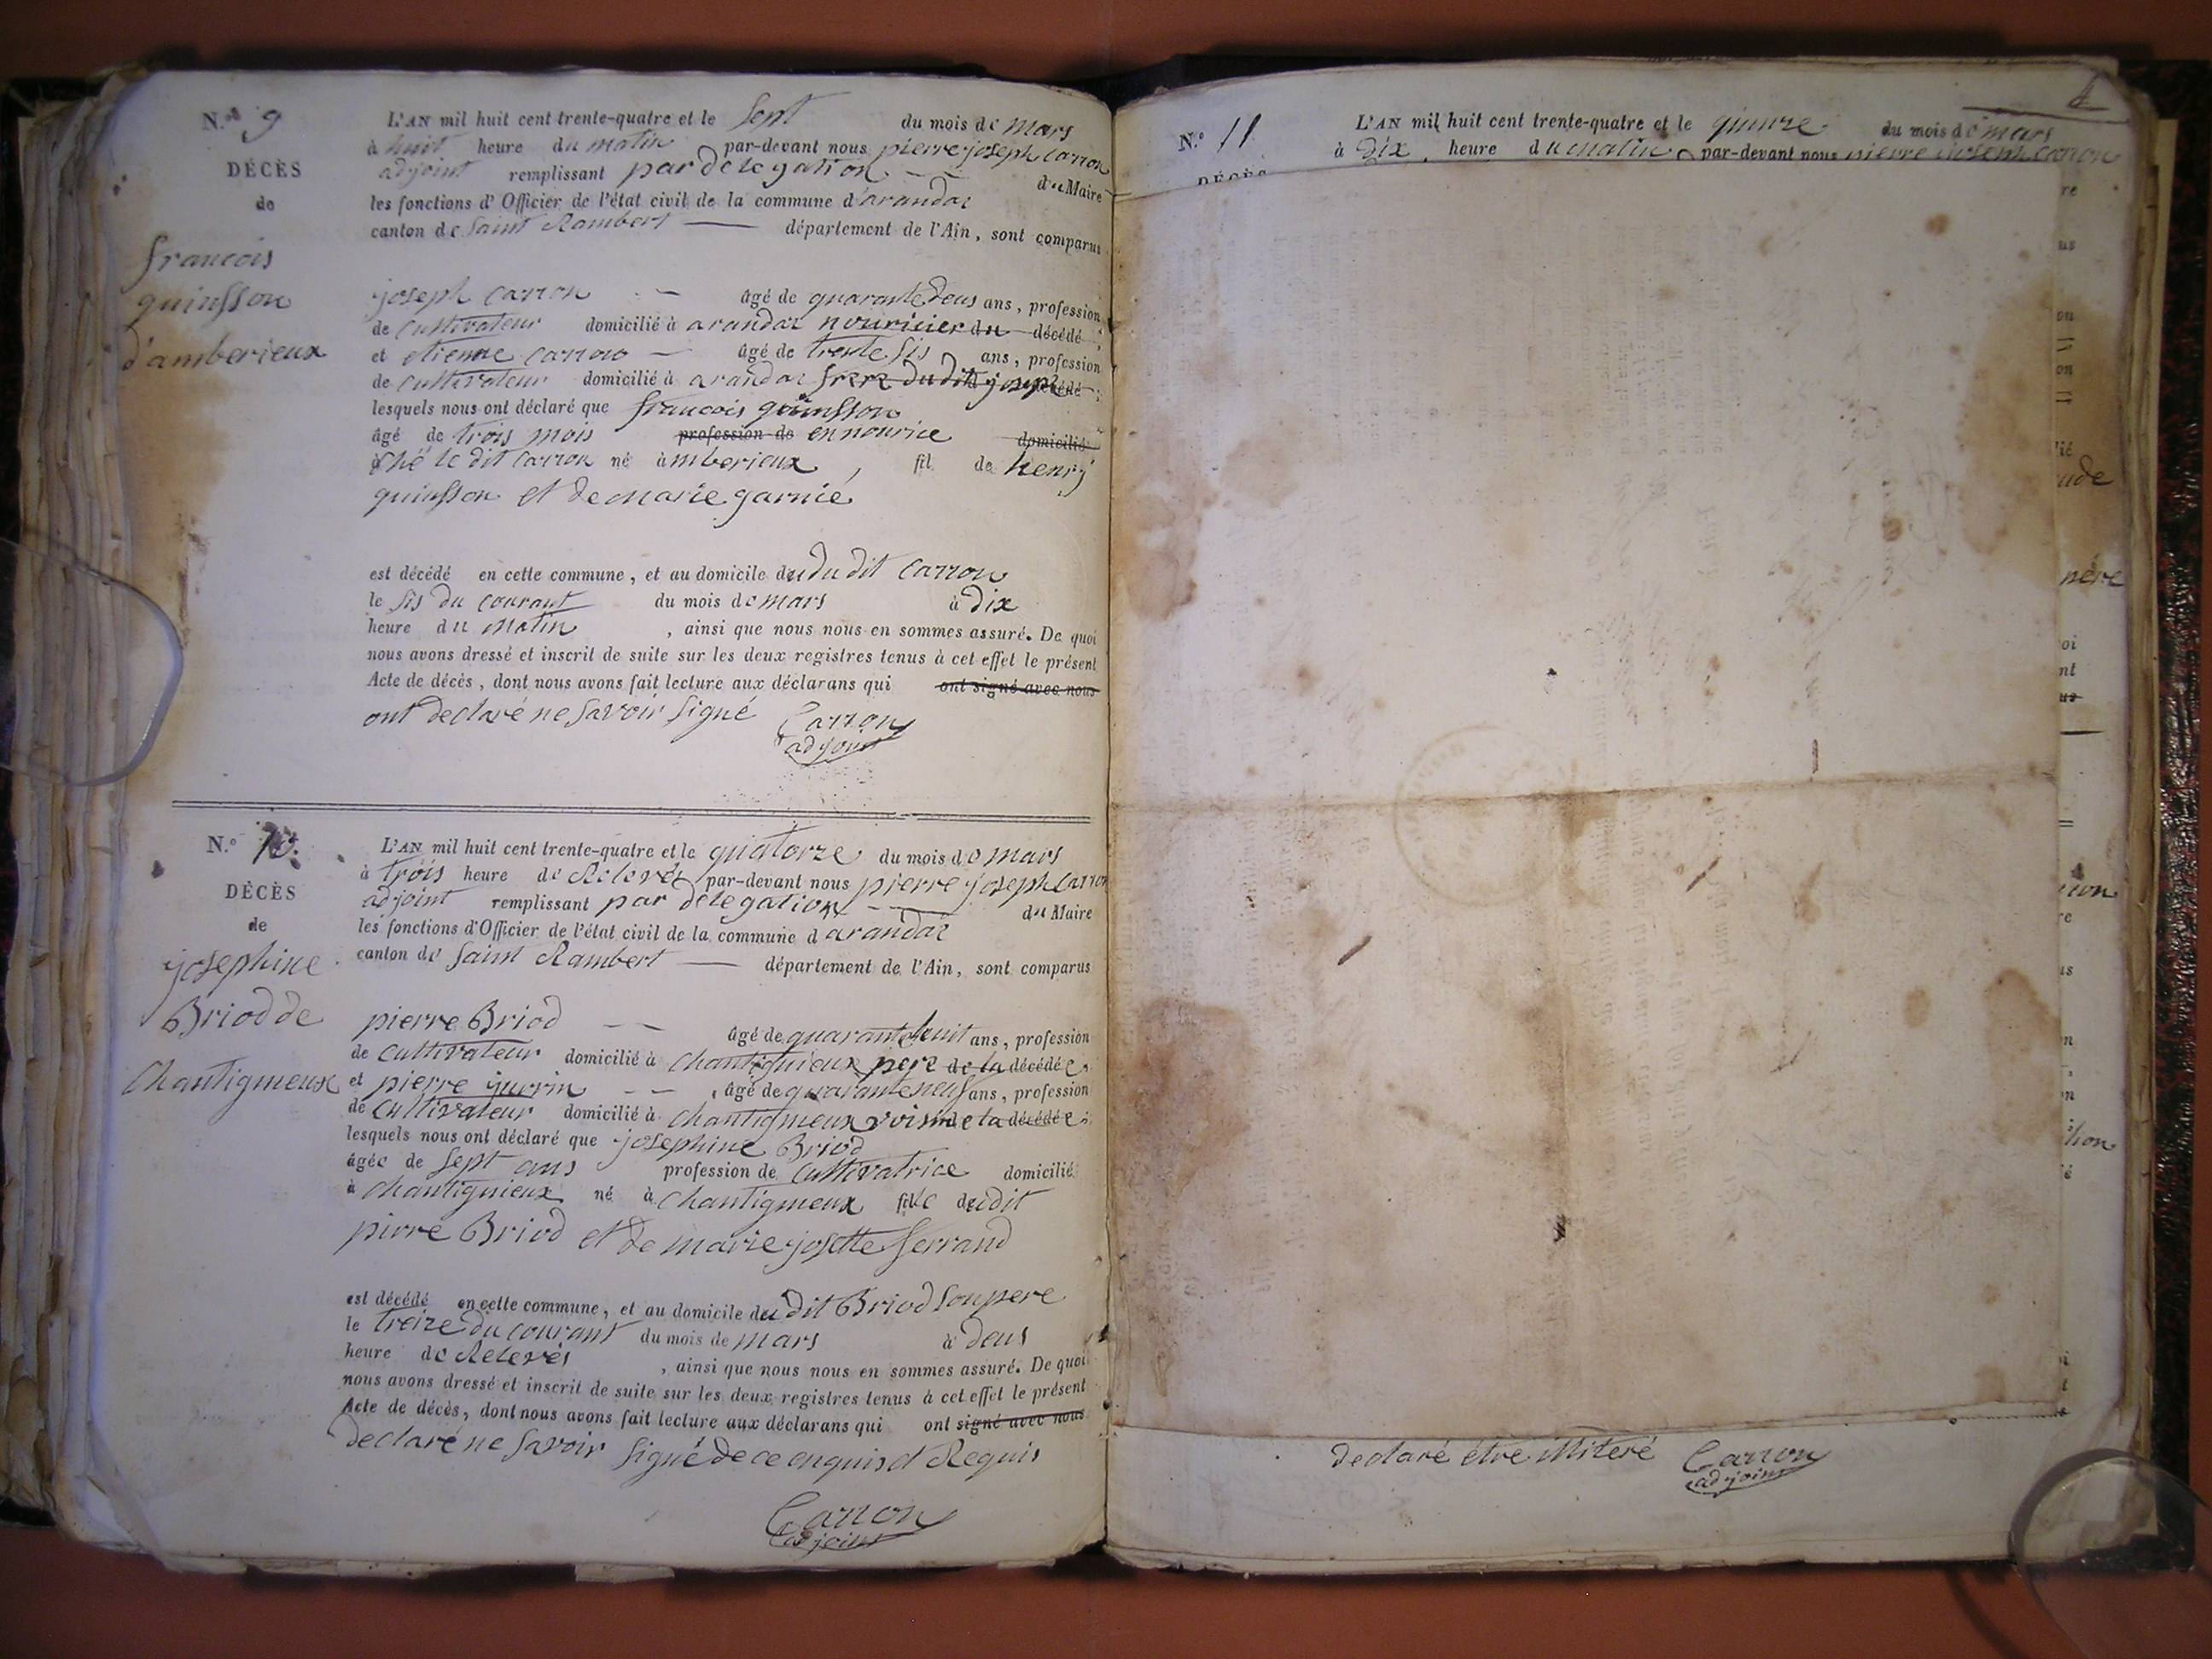 N.º 9
DÉCÈS
de
francois
quinsson
d'amberieux
L'AN mil huit cent trente-quatre et le sept du mois de mars
à huit heure du matin par-devant nous pierre joseph carron
adjoint remplissant par délégation du Maire
les fonctions d'Officier de l'état civil de la commune d'arandas
canton de saint Rambert département de l'Ain, sont comparus
joseph carron âgé de quarante deus ans, profession
de cultivateur domicilié à arandas nouricier du décédé
et etienne carron âgé de trente sis ans, profession
de cultivateur domicilié à arandas frere du dit joseph décédé ;
lesquels nous ont déclaré que francois quinsson
âgé de trois mois profession de en nourice domicilié
ché le dit carron né amberieux , fil de henry
quinsson et de marie garnié
est décédé en cette commune, et au domicile du du dit carron
le sis du courant du mois de mars à dix
heure du matin , ainsi que nous nous en sommes assuré. De quoi
nous avons dressé et inscrit de suite sur les deux registres tenus à cet effet le présent
Acte de décès, dont nous avons fait lecture aux déclarans qui ont signé avec nous
ont declaré ne savoir signé Carron
adjoint
N.º 10.
DÉCÈS
de
josephine
Briod de
Chantignieux
L'AN mil huit cent trente-quatre et le quatorze du mois de mars
à trois heure de Relevés par-devant nous pierre joseph carron
adjoint remplissant par délégation du Maire
les fonctions d'Officier de l'état civil de la commune d arandas
canton de saint Rambert département de l'Ain, sont comparus
pierre Briod âgé de quarante huit ans, profession
de cultivateur domicilié à chantignieux pere de la décédée
et pierre guerrin , âgé de quarante neuf ans, profession
de cultivateur domicilié à chantignieux voisin de la décédée ;
lesquels nous ont déclaré que josephine Briod
âgée de sept ans profession de cultivatrice domicilié
à chantignieux né à chantignieux fille dudit
pierre Briod et de marie josette serrand
est décédé en cette commune, et au domicile du dit Briod son pere
le treize du courant du mois de mars à deus
heure de Relevés , ainsi que nous nous en sommes assuré. De quoi
nous avons dressé et inscrit de suite sur les deux registres tenus à cet effet le présent
Acte de décès, dont nous avons fait lecture aux déclarans qui ont signé avec nous
declaré ne savoir signé de ce enquis et Requis
Carron
adjoint
N.º 11
L'AN mil huit cent trente-quatre et le quinze du mois de mars
à dix heure du matin par-devant nous pierre joseph carron
DÉCÈS
declaré être illiteré Carron
adjoint